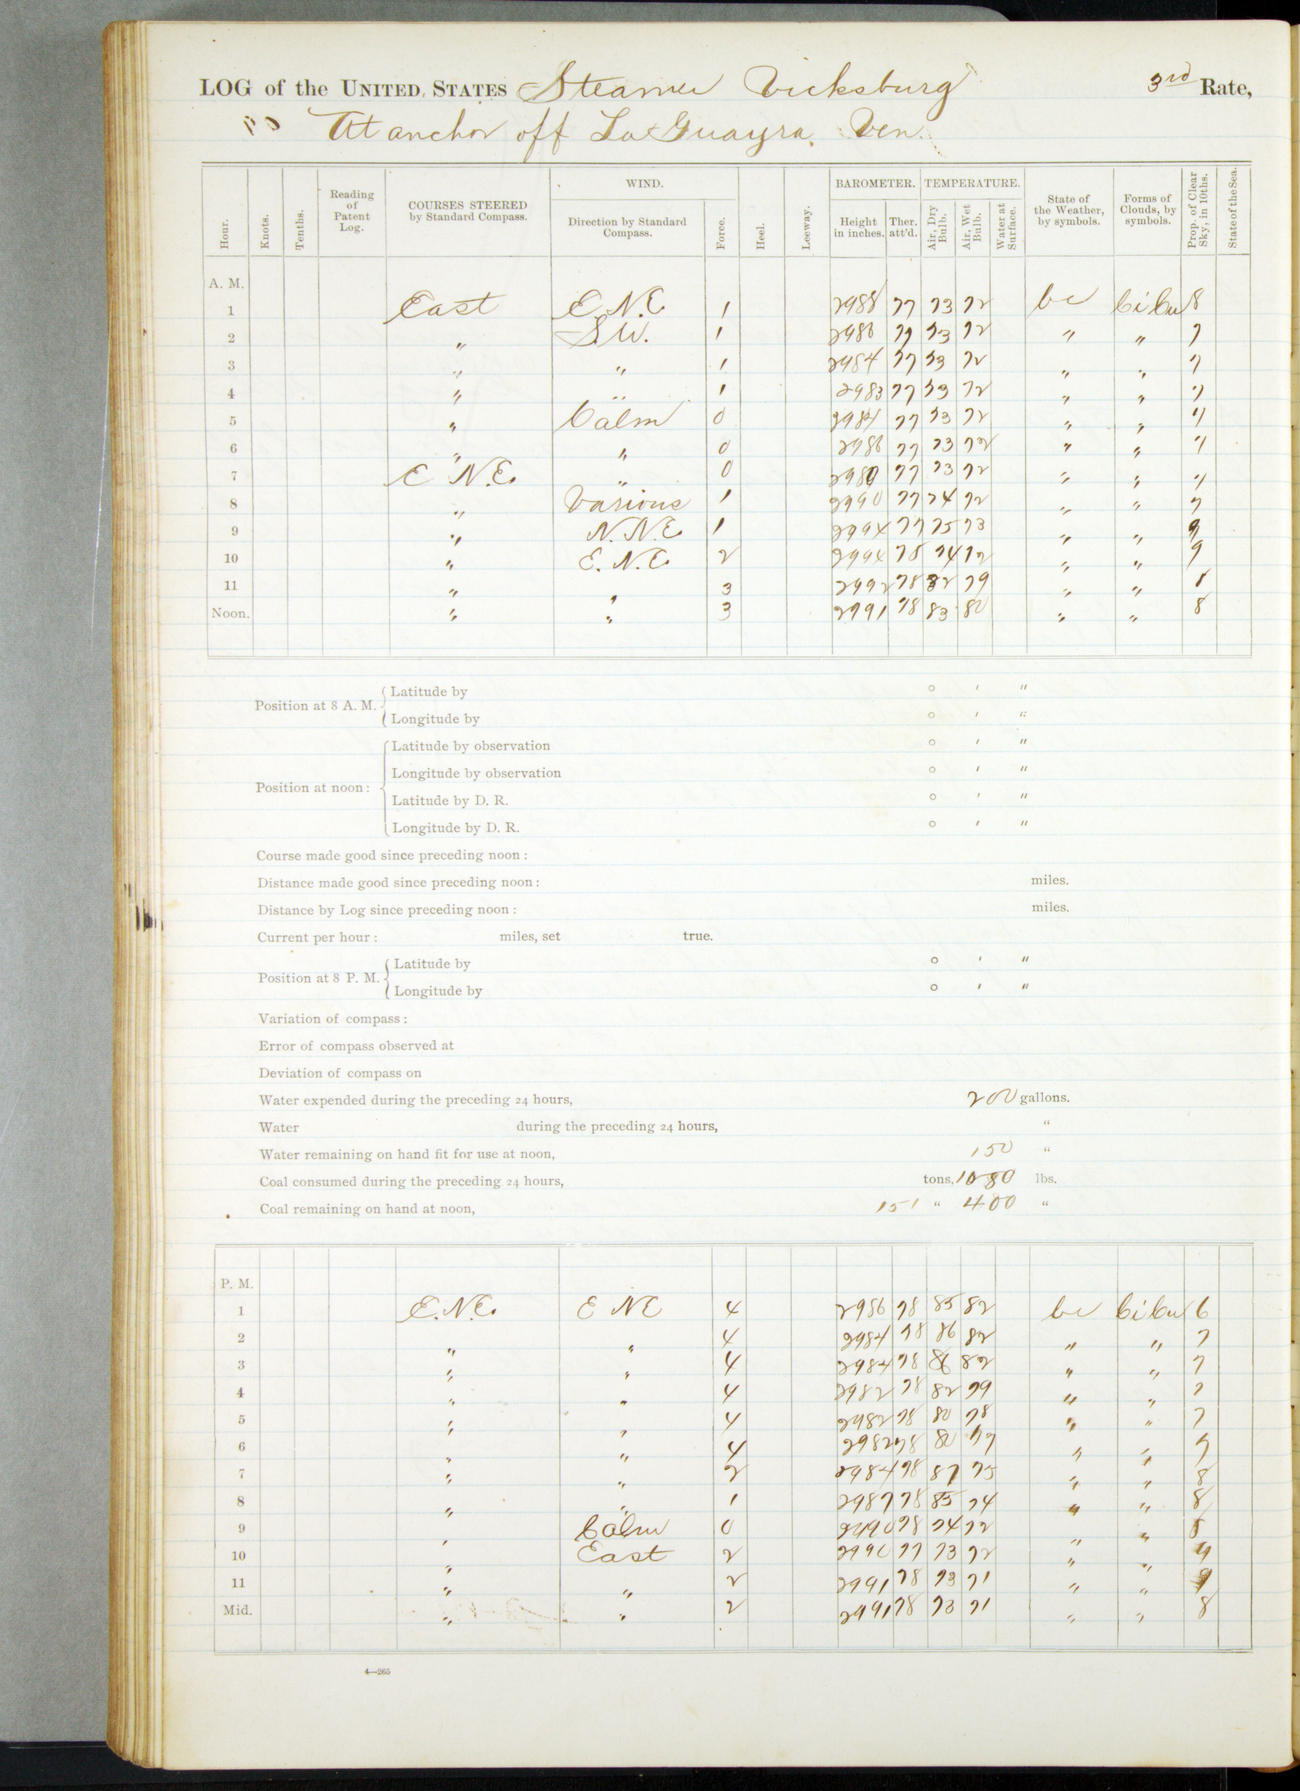 LOG of the UNITED STATES Steamer Vicksburg 3rd Rate,
At anchor off La Guayra, Ven.
Hour. Knots. Tenths. Reading of Patent Log. COURSES STEERED by Standard Compass. WIND. Direction by Standard Compass. Force. Heel. Leeway. BAROMETER. Height in inches. Ther. att'd. TEMPERATURE. Air, Dry Bulb. Air, Wet Bulb. Water at Surface. State of the Weather, by symbols. Forms of Clouds, by symbols. Prop. of Clear Sky, in 10ths. State of the Sea.
A. M.
1 East E.N.E 1 2988 77 73 72 bc Ci Cu 8
2 " S.W. 1 2986 77 73 72 " " 7
3 " " 1 2984 77 73 72 " " 7
4 " " 1 2983 77 73 72 " " 7
5 " Calm 0 2984 77 73 72 " " 7
6 " " 0 2986 77 73 72 " " 7
7 E N.E. " 0 77 73 72 " " 7
8 " Various 1 2990 77 74 72 " " 7
9 " N.N.E 1 2994 77 75 73 " " 9
10 " E.N.E. 2 2994 78 74 72 " " 9
11 " " 3 2992 78 82 79 " "
Noon. " " 3 2991 78 83 80 " " 8
Position at 8 A. M. Latitude by ° ' "
Longitude by ° ' "
Position at noon: Latitude by observation ° ' "
Longitude by observation ° ' "
Latitude by D. R. ° ' "
Longitude by D. R. ° ' "
Course made good since preceding noon:
Distance made good since preceding noon: miles.
Distance by Log since preceding noon: miles.
Current per hour: miles, set true.
Position at 8 P. M. Latitude by ° ' "
Longitude by ° ' "
Variation of compass:
Error of compass observed at
Deviation of compass on
Water expended during the preceding 24 hours, 200 gallons.
Water during the preceding 24 hours, "
Water remaining on hand fit for use at noon, 150 "
Coal consumed during the preceding 24 hours, tons, 1080 lbs.
Coal remaining on hand at noon, 151 " 400 "
P. M.
1 E.N.E. E NE 4 2986 78 85 82 bc Ci Cu 6
2 " " 4 2984 78 86 82 " " 7
3 " " 4 2984 78 86 82 " " 7
4 " " 4 2982 78 82 79 " " 7
5 " " 4 2982 78 80 78 " " 7
6 " " 4 2982 78 80 77 " " 7
7 " " 2 2984 78 75 " " 8
8 " " 1 2987 78 85 74 " " 8
9 " Calm 0 2990 78 74 72 " " 8
10 " East 2 2990 77 73 72 " " 9
11 " " 2 2991 78 73 71 " " 9
Mid. " " 2 2991 78 73 71 " " 8
4—265